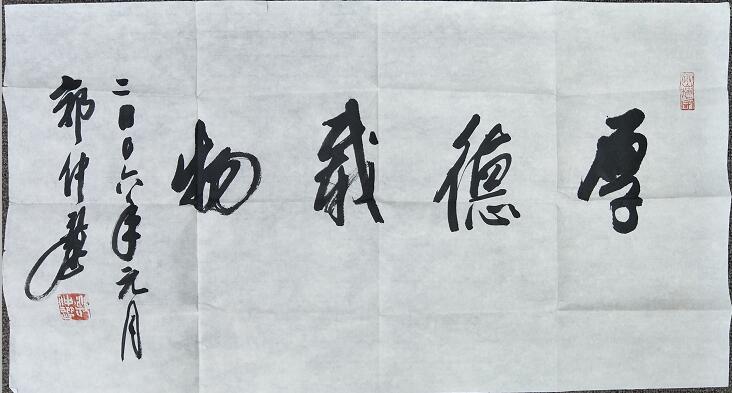 厚德載物
二〇〇六年元月
郭仲